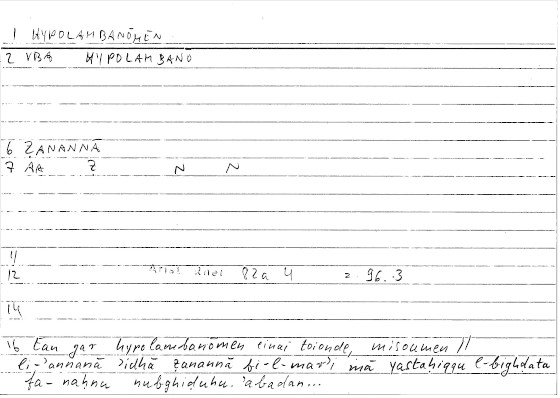 1 HYPOLAMBANŌMEN
2 VBA HYPOLAMBANO
6 ẒANANNĀ
7 AA Ẓ N N
11
12 Arist Rhet 82a 4 = 96.3
14
16 Ean gar hypolambanōmen einai toionde, misoumen //
li-'annanā 'idhā ẓanannā bi-l-mar'i mā yastaḥiqqu l-bighḍata
fa-naḥnu nubghiḍuhu 'abadan...